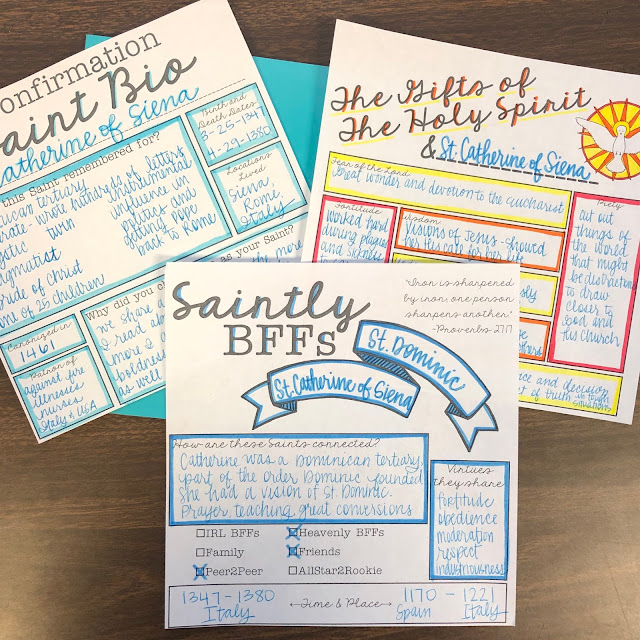 onfirmation
Saint Bio
Catherine of Siena
this Saint remembered for?
ican tertiary
wrote hundreds of letters
twin
instrumental
influence in
politics and
getting Pope
back to Rome
Stigmatist
Bride of Christ
one of 25 children
Birth and
Death Dates
3-25-1347
4-29-1380
Locations
Lived
Siena,
Rome,
Italy
Canonized in
1461
Patron of
against fire
illnesses
nurses
Italy & USA
Why did you
as your Saint?
we share
the more
I read
more I
boldness
as well
The Gifts of
The Holy Spirit
& St. Catherine of Siena
Fear of the Lord
Great wonder and devotion to the eucharist
Fortitude
worked hard
during plague
and
Wisdom
visions of Jesus - showed
her His care for her life
Piety
cut out
things of
the world
that might
be distractions
to draw
closer to
God and
His Church
and decision
of truth in tough
situations
Saintly
BFFs
"Iron is sharpened
by iron; one person
sharpens another."
-Proverbs 27:17
St. Dominic
St. Catherine of Siena
How are these Saints connected?
Catherine was a Dominican tertiary,
part of the order Dominic founded
She had a vision of St. Dominic.
Prayer, teaching, great conversions
Virtues
they share
fortitude
obedience
moderation
respect
industriousness
IRL BFFs
Heavenly BFFs
Family
Friends
Peer2Peer
AllStar2Rookie
1347-1380
Italy
Time & Place
1170 - 1221
Spain Italy